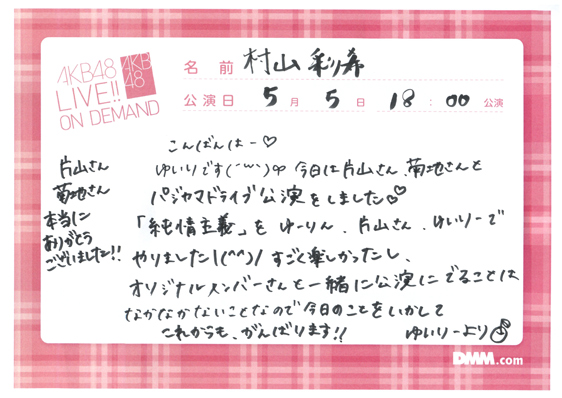 AKB48
LIVE!!
ON DEMAND
AKB
48
名前 村山彩希
公演日 5月5日 18:00公演
こんばんはー♡
ゆいりです(´ω`)今日は片山さん、菊地さんと
パジャマドライブ公演をしました♡
「純情主義」を ゆーりん、片山さん、ゆいりーで
やりました\(^^)/ すごく楽しかったし、
オリジナルメンバーさんと一緒に公演にでることは
なかなかないことなので今日のことをいかして
これからも、がんばります!!
ゆいりーより
片山さん
菊地さん
本当に
ありがとう
ございました!!
DMM.com